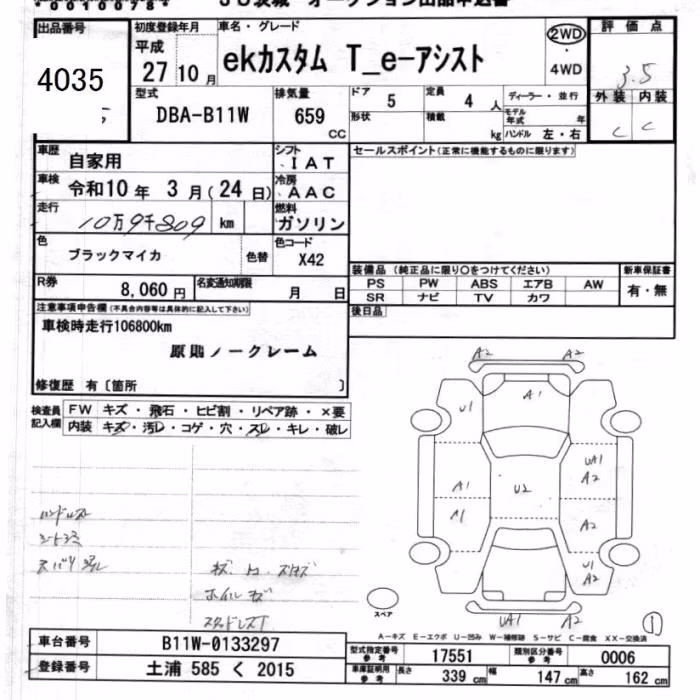 出品番号
4035
初度登録年月
平成
27 10 月
車名・グレード
ekカスタム T_e-アシスト
2WD
・
4WD
評価点
3.5
外装 内装
C C
型式
DBA-B11W
排気量
659
CC
ドア 5
定員 4 人
形状
積載 kg
ディーラー・並行
モデル年式 年
ハンドル 左・右
車歴
自家用
シフト
IAT
車検
令和10 年 3 月 ( 24 日)
冷房
AAC
走行
10万9千809 km
燃料
ガソリン
色
ブラックマイカ
色替
色コード
X42
R券
8,060 円
名変通知期限
月 日
セールスポイント(正常に機能するものに限ります)
装備品 (純正品に限り○をつけてください)
PS PW ABS エアB AW
SR ナビ TV カワ
新車保証書
有・無
後日品
注意事項申告欄(不具合内容等は具体的に記入して下さい)
車検時走行106800km
原則ノークレーム
修復歴 有〔箇所 〕
検査員記入欄
FW キズ・飛石・ヒビ割・リペア跡・×要
内装 キズ・汚レ・コゲ・穴・スレ・キレ・破レ
ハンドルスレ
A2 A2
A1
U1
UA1
A2
A1
U2
A1
A2
U1
A2
UA1 A2
スペア
1
A-キズ E-エクボ U-凹み W-補修跡 S-サビ C-腐食 XX-交換済
車台番号
B11W-0133297
登録番号
土浦 585 く 2015
型式指定番号
参考
17551
類別区分番号
参考
0006
車庫証明用
参考
長さ 339 cm
幅 147 cm
高さ 162 cm